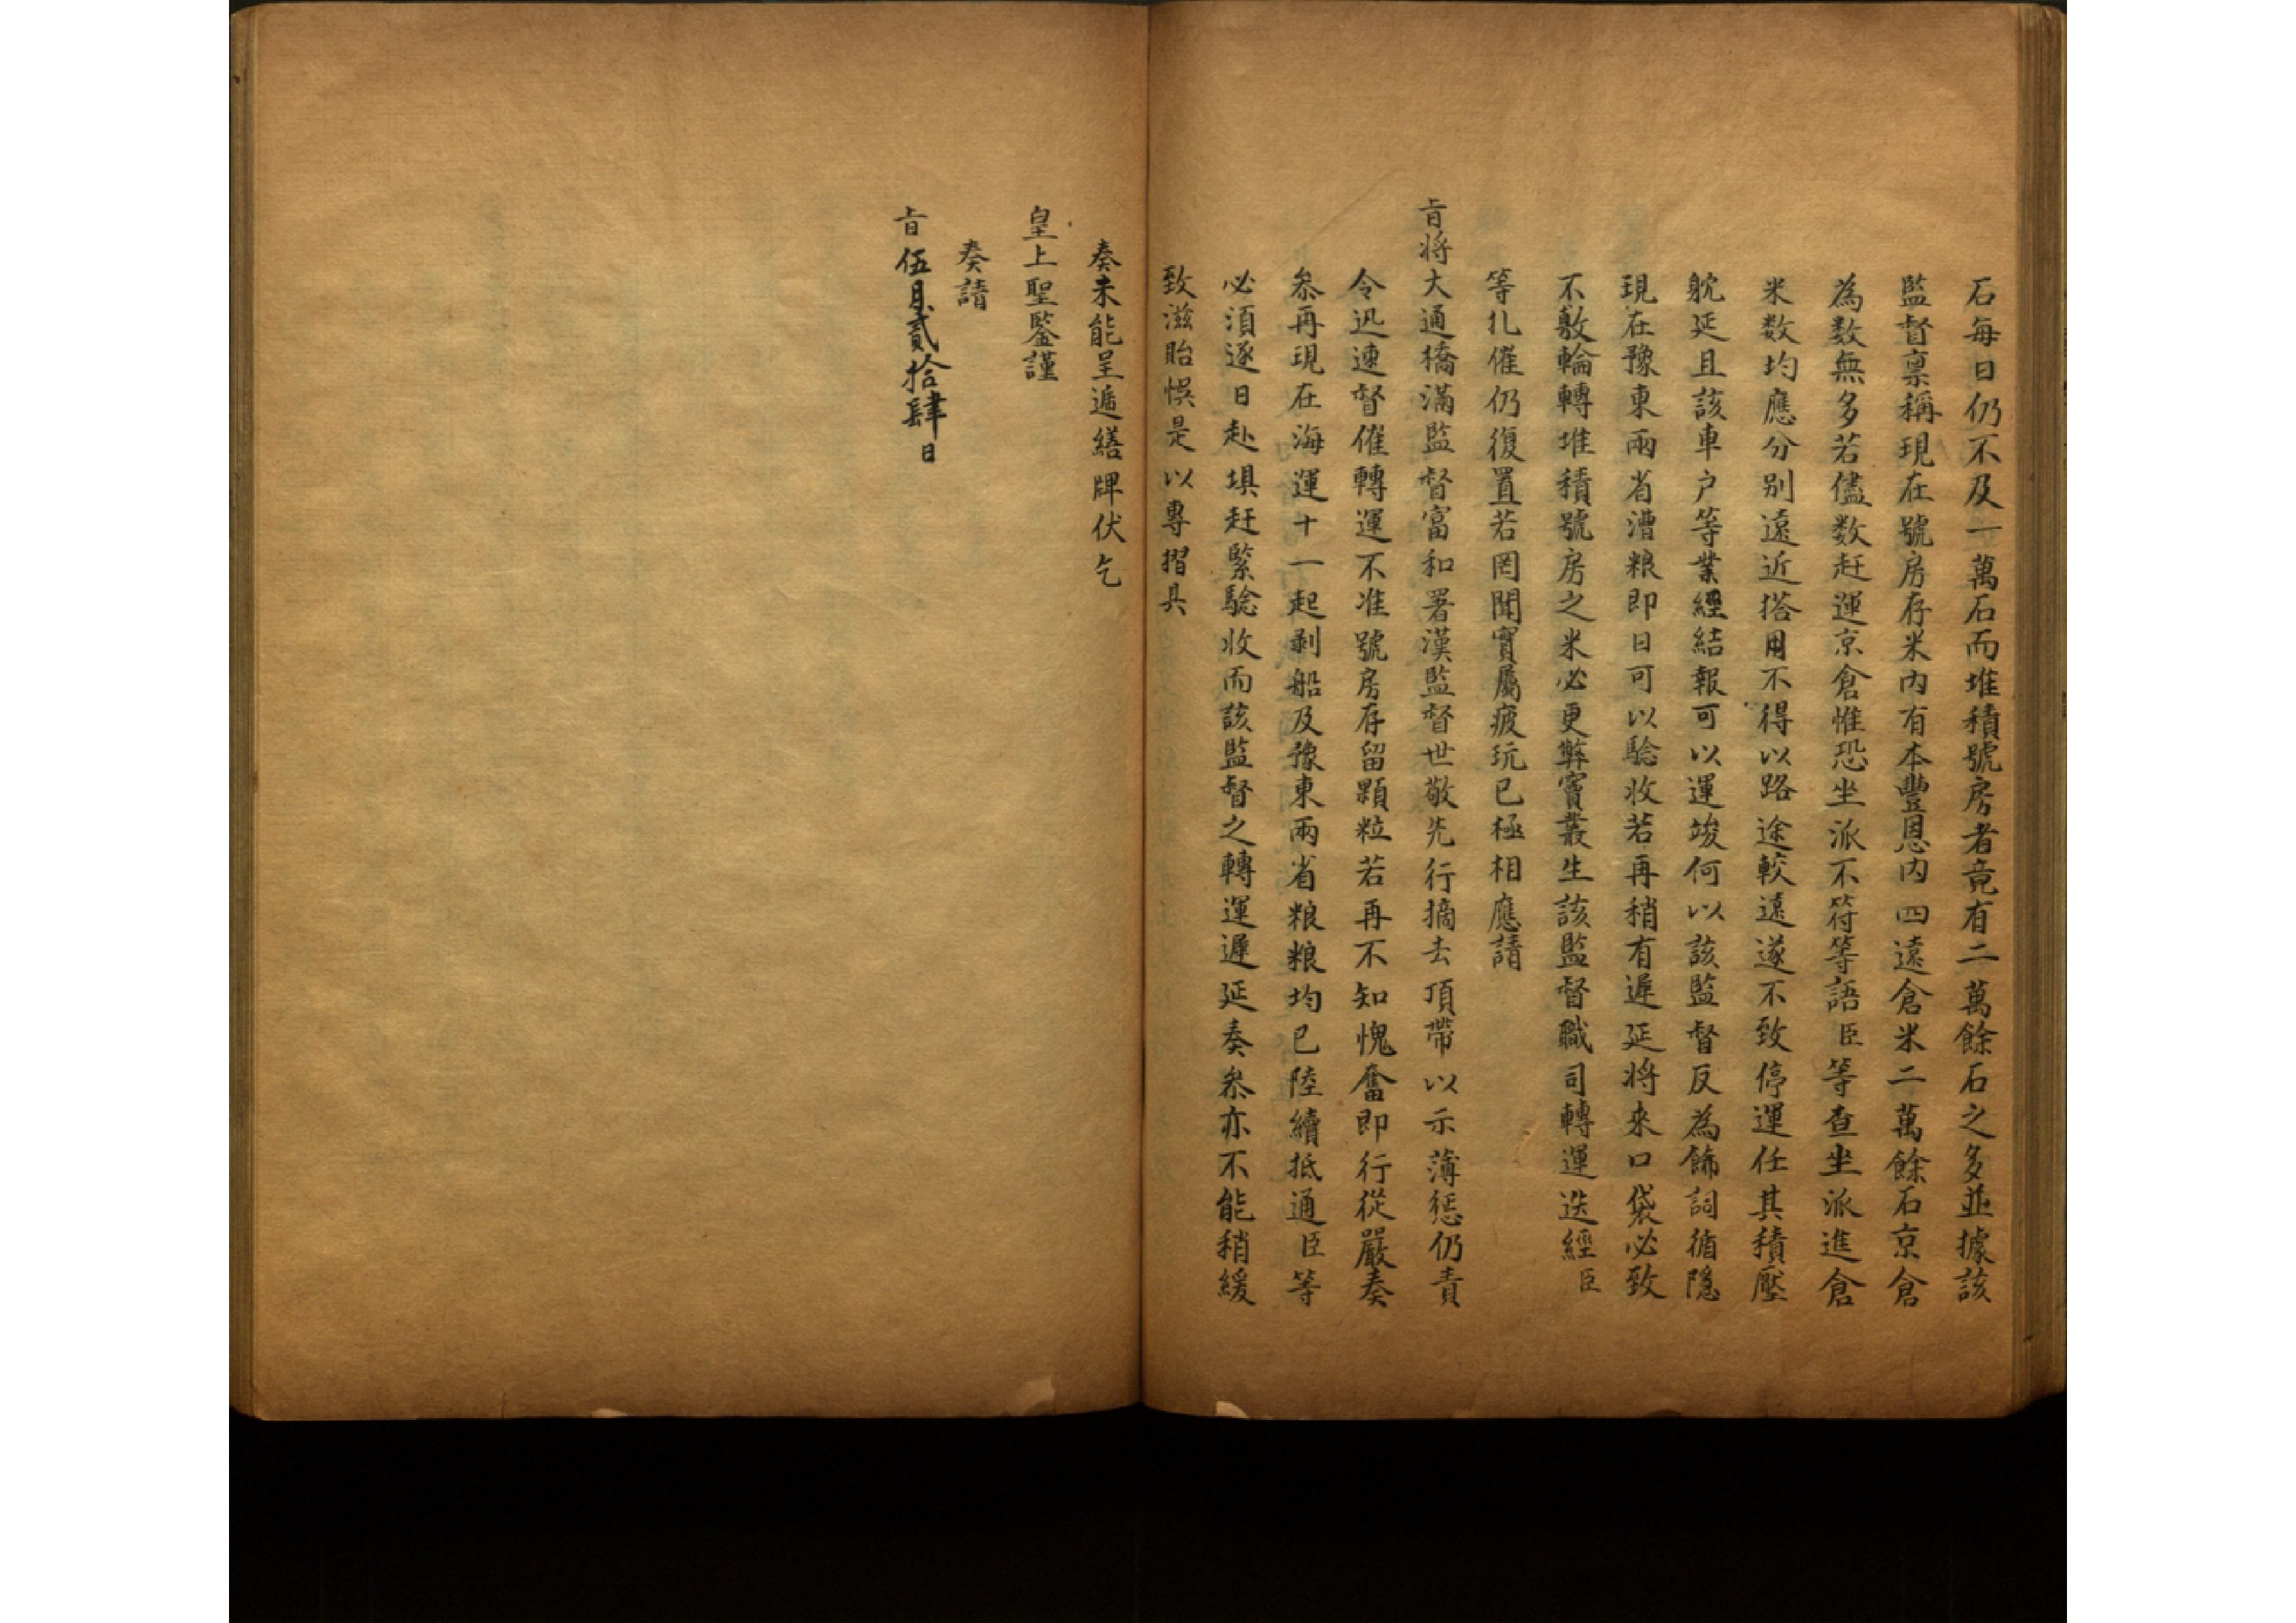 石每日仍不及一萬石而堆積號房者竟有二萬餘石之多並據該
監督禀稱現在號房存米内有本豐恩内四遠倉米二萬餘石京倉
為数無多若儘数赶運京倉惟恐坐派不符等語臣等查坐派進倉
米数均應分别遠近搭用不得以路途較遠遂不致停運任其積壓
躭延且該車户等業經結報可以運竣何以該監督反為飾詞循隱
現在豫東兩省漕粮即日可以驗收若再稍有遲延将來口袋必致
不敷輪轉堆積號房之米必更弊竇叢生該監督職司轉運迭經臣
等扎催仍復置若罔聞實屬疲玩已極相應請
旨将大通橋滿監督富和署漢監督世敬先行摘去頂帶以示薄懲仍責
令迅速督催轉運不准號房存留顆粒若再不知愧奮即行從嚴奏
叅再現在海運十一起剥船及豫東兩省粮粮均已陸續抵通臣等
必須逐日赴埧赶緊驗收而該監督之轉運遲延奏叅亦不能稍緩
致滋貽悞是以專摺具
奏未能呈遞繕牌伏乞
皇上聖鑒謹
奏請
旨伍月貳拾肆日